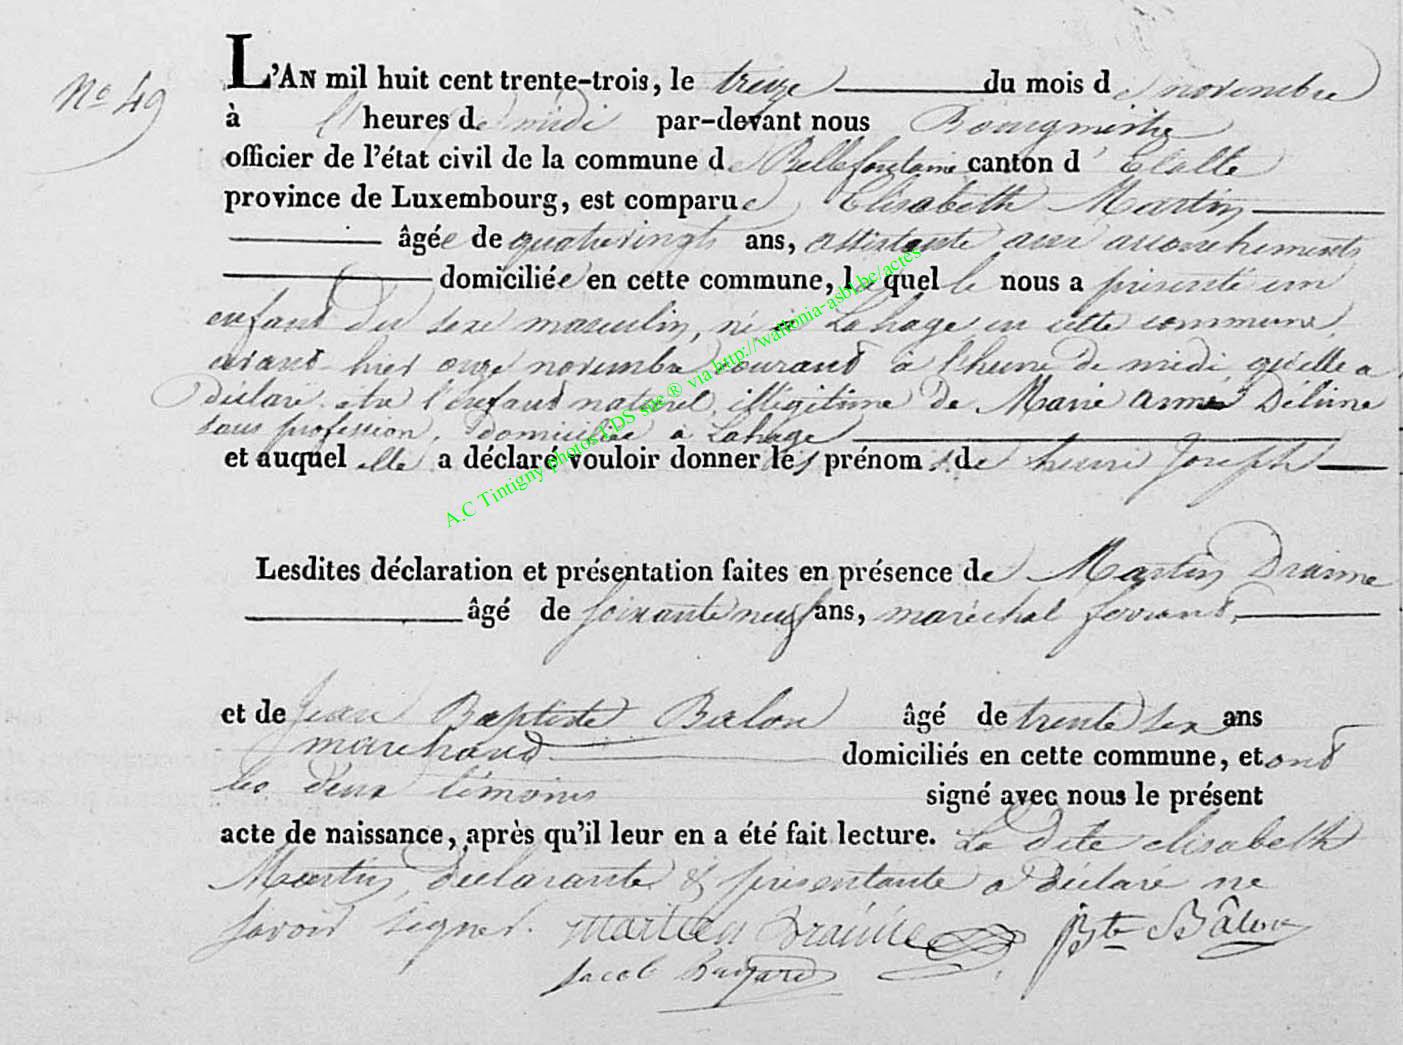 No 49
L'AN mil huit cent trente-trois, le treize du mois de novembre
à heures de midi par-devant nous Bourgmestre
officier de l'état civil de la commune de Bellefontaine canton d' Etalle
province de Luxembourg, est comparue Elisabeth Martin
âgée de quatrevingts ans, assistante aux accouchements
domiciliée en cette commune, laquelle nous a présenté un
enfant du sexe masculin, né à Lahage en cette commune
avant hier onze novembre courant à l'heure de midi qu'elle a
déclaré être l'enfant naturel, illégitime de Marie
sans profession, domiciliée à Lahage
et auquel elle a déclaré vouloir donner les prénoms de henri Joseph
Lesdites déclaration et présentation faites en présence de Martin
âgé de soixante neuf ans, maréchal ferrant,
et de Jean Baptiste Balon âgé de trente six ans
marchand domiciliés en cette commune, et ont
les deux témoins signé avec nous le présent
acte de naissance, après qu'il leur en a été fait lecture. La dite elisabeth
Martin, déclarante & présentante a déclaré ne
savoir signer. Martin Bte Bâlon
Jacob
A.C Tintigny photos LDS site ® via http://wallonia-asbl.be/actes